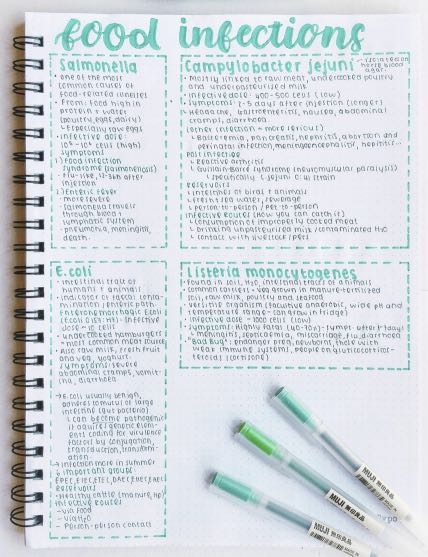 food infections
Salmonella
• one of the most
common causes of
food-related illnesses
• From: food high in
protein + water
(poultry, eggs, dairy)
↳ Especially raw eggs
• infective dose:
(high)
symptoms
1) Food infection
syndrome (salmonellosis)
• Flu-like, 12-36h after
injestion
2) Enteric fever
• more severe
• salmonella travels
through blood +
lymphatic system
- pneumonia, meningitis,
death.
Campylobacter jejuni
- isolated on
horse blood
agar
• mostly linked to raw meat, undercooked poultry
and underpasteurised milk
• infective dose: 400-500 cells (low)
• symptoms: 2-5 days after injestion (longer)
• Headache, gastroenteritis, nausea, abdominal
cramps, diarrhoea.
(other infection = more serious)
↳ Bacteremia, pancreatitis, nephritis, abortion and
perinatal infection, meningoencephalitis, hepatitis...
Post infection
↳ Reactive arthritis
↳ Guillain-Barré syndrome (neuromuscular paralysis)
↳ specifically C. jejuni O:19 strain
Reservoirs
↳ intestines of birds + animals
↳ Fresh/sea water, sewerage
↳ person-to-person / pet-to-person
Infective Routes (how you can catch it)
↳ consumption of improperly cooked meat
↳ drinking unpasteurised milk/contaminated H₂O
↳ contact with livestock/pets
E.coli
• intestinal tract of
humans + animals
• indicator of faecal conta-
mination + enteric path.
Enterohemorrhagic Ecoli
(E.coli O157:H7) - infective
dose - 10 cells
• Undercooked hamburgers
= most common meat source
• Also raw milk, fresh fruit
and veg, yoghurt.
Symptoms: severe
abdominal cramps, vomit-
ing, diarrhoea
→ E.coli usually benign,
adheres to mucus of large
intestine (gut bacteria)
↳ can become pathogenic
if it aquires genetic elem-
ents coding for virulence
factors by conjugation,
transduction, transform-
ation.
↳ Infection more in summer
6 important groups
EPEC, EIEC, ETEC, DAEC, EHEC, EAEC
Reservoirs
- Healthy cattle (manure, H₂O)
Infective Routes
- via food
- via H₂O
- Person-person contact
Listeria monocytogenes
• Found in soils, H₂O, intestinal tracts of animals
• common carriers - veg grown in manure-fertilized
soil, raw milk, poultry and seafood
• versatile organism (facultive anaerobic, wide pH and
temperature range - can grow in fridge)
• infective dose - 1000 cells (low)
• symptoms: Highly fatal
- meningitis, septicaemia, miscarriage, flu, diarrhoea
"Bad Bug": endanger preg, newborns, those with
weak immune systems, people on glucocortico-
steroids (cortisone)
MUJI 無印良品
MUJI 無印良品
MUJI 無印良品